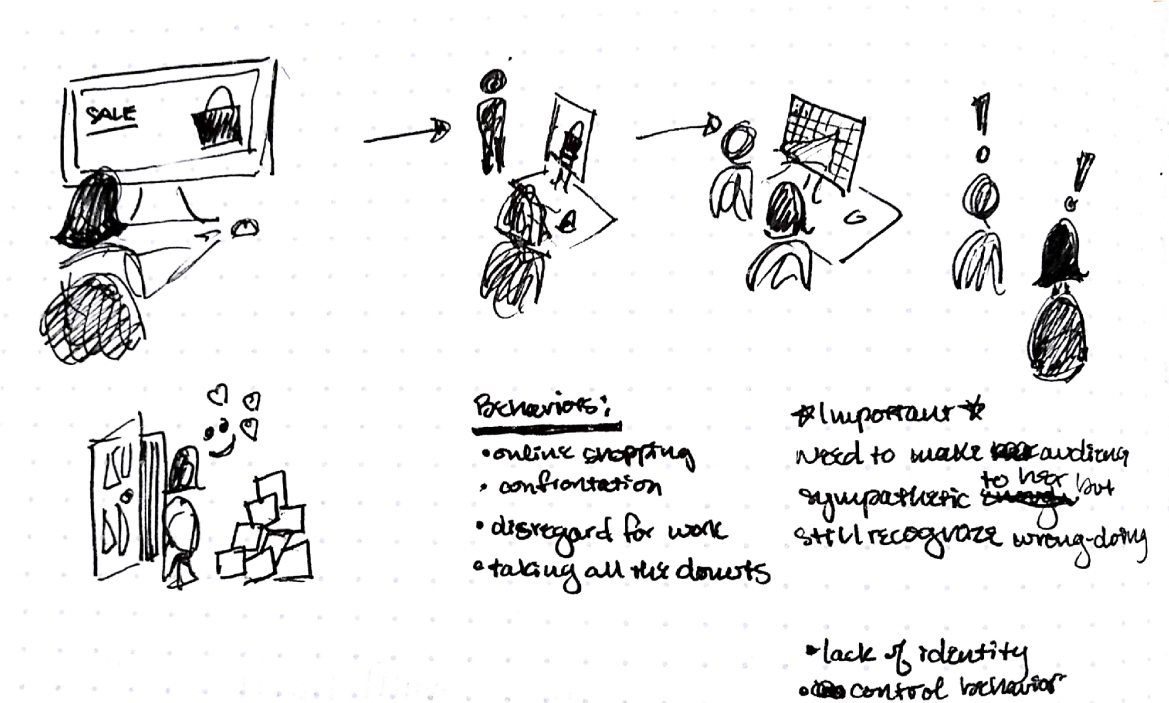 SALE
! !
Behaviors:
• online shopping
• confrontation
• disregard for work
• taking all the donuts
☆Important☆
need to make audiene
to her
sympathetic but
still recognize wrong-doing
• lack of identity
• control behavior